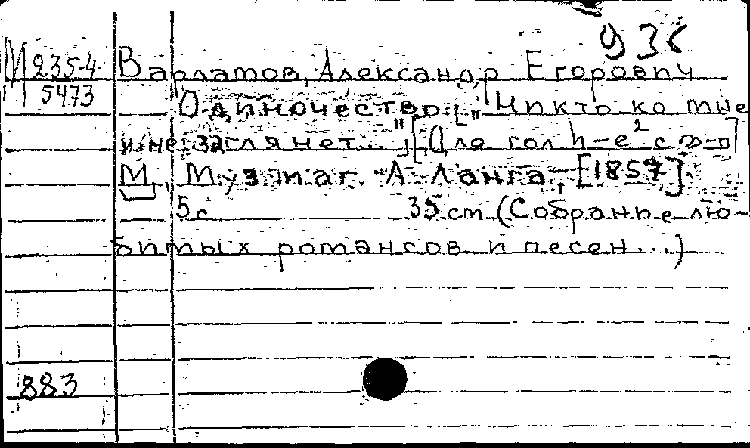 936
М 235-4
5473
Варламов, Александр Егорович
Одиночество. ["Никто ко мне
и не заглянет..."] [Для гол h-e² с ф-п]
М., Муз маг. А Ланга, [1857].
5с 35cm (Собрание лю-
бимых романсов и песен...)
883